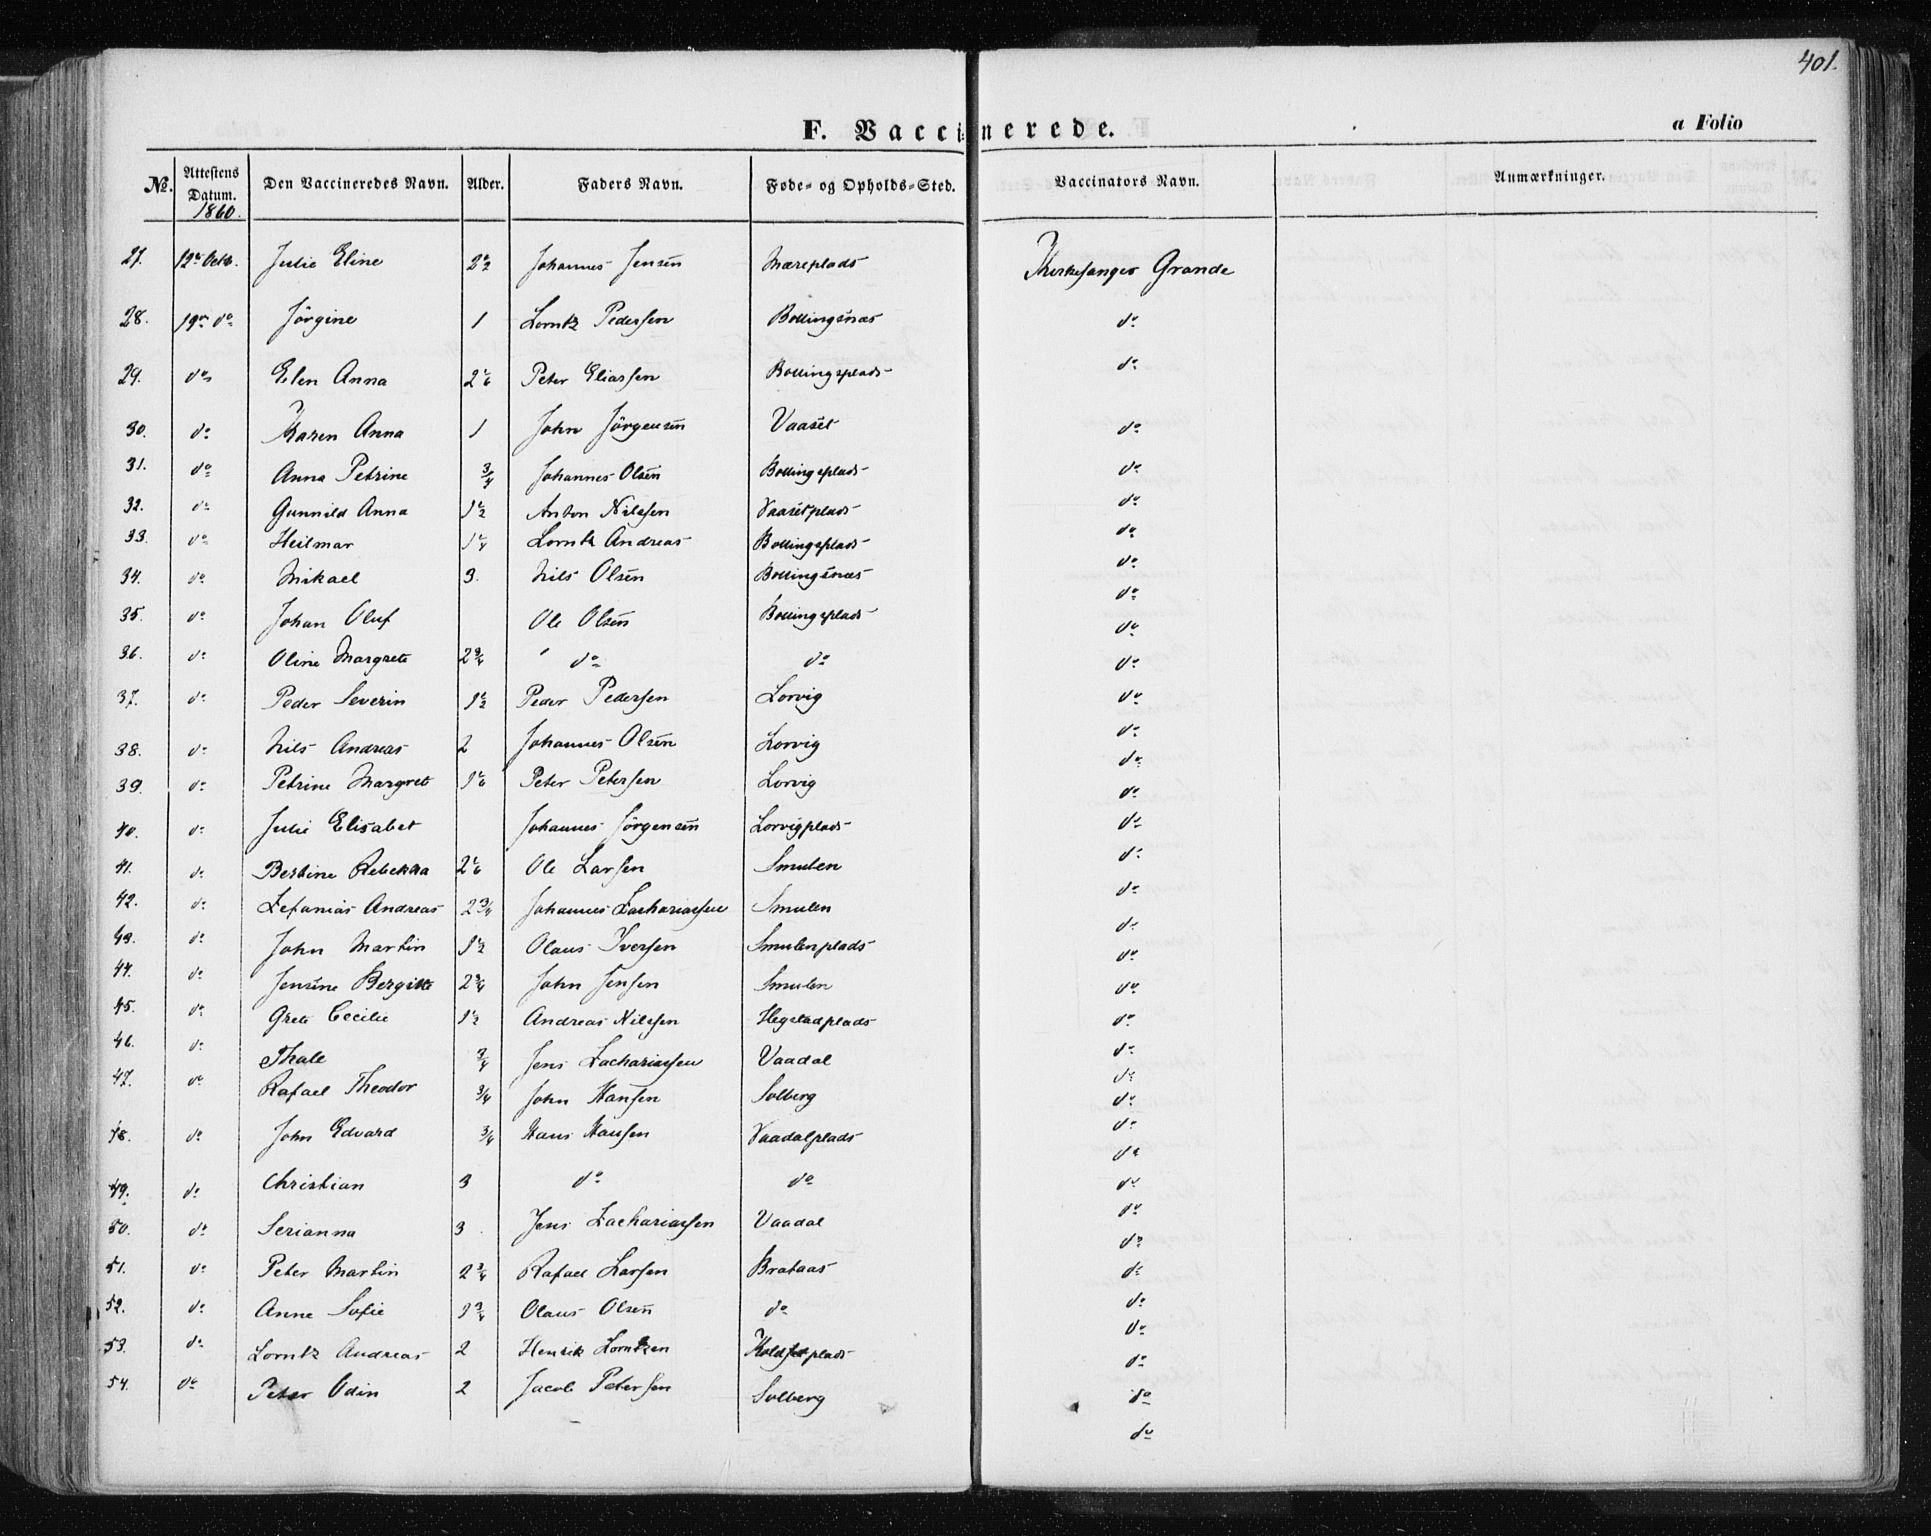 401.
F. Vaccinerede.
a Folio
No. Attestens Datum. Den Vaccineredes Navn. Alder. Faders Navn. Føde- og Opholds-Sted. Vaccinators Navn. Anmærkninger.
1860.
27. 12te Octb. Julie Eline 2½ Johannes Jensen Mæreplads Kirkesanger Grande
28. 19de do Jörgine 1 Lorntz Pedersen Bollingsnæs do
29. do Elen Anna 2 1/6 Peter Eliassen Bollingsplads do
30. do Karen Anna 1 John Jörgensen Vaaset do
31. do Anna Petrine 3/4 Johannes Olsen Bollingsplads do
32. do Gunnild Anna 1½ Anton Nilssen Vaasetplads do
33. do Heilmar 1¼ Lorntz Andreas Bollingsplads do
34. do Mikael 3. Nils Olsen Bollingsnæs do
35. do Johan Oluf Ole Olsen Bollingsplads do
36. do Oline Margrete 2¾ do do do
37. do Peder Severin 1½ Peder Pedersen Lorvig do
38. do Nils Andreas 2 Johannes Olsen Lorvig do
39. do Petrine Margret 1 1/6 Peter Petersen Lorvig do
40. do Julie Elisabet Johannes Jörgensen Lorvigplads do
41. do Bertine Rebekka 2 1/6 Ole Larsen Smulen do
42. do Zefanias Andreas 2¾ Johannes Zachariassen Smulen do
43. do John Martin 1½ Olaus Iversen Smulenplads do
44. do Jensine Bergitte 2¾ John Jensen Smulen do
45. do Grete Cecilie 1½ Andreas Nilssen Hegstadplads do
46. do Thale ¾ Jens Zachariassen Vaadal do
47. do Rafael Theodor ¾ John Hansen Solberg do
48. do John Edvard ¾ Hans Hansen Vaadalplads do
49. do Christian 3 do do do
50. do Serianna 3. Jens Zachariassen Vaadal do
51. do Peter Martin 2¾ Rafael Larsen Brataas do
52. do Anne Sofie 1¾ Olaus Olsen do do
53. do Lorntz Andreas 2 Henrik Lorntzen do
54. do Peter Odin 2 Jacob Petersen Solberg do